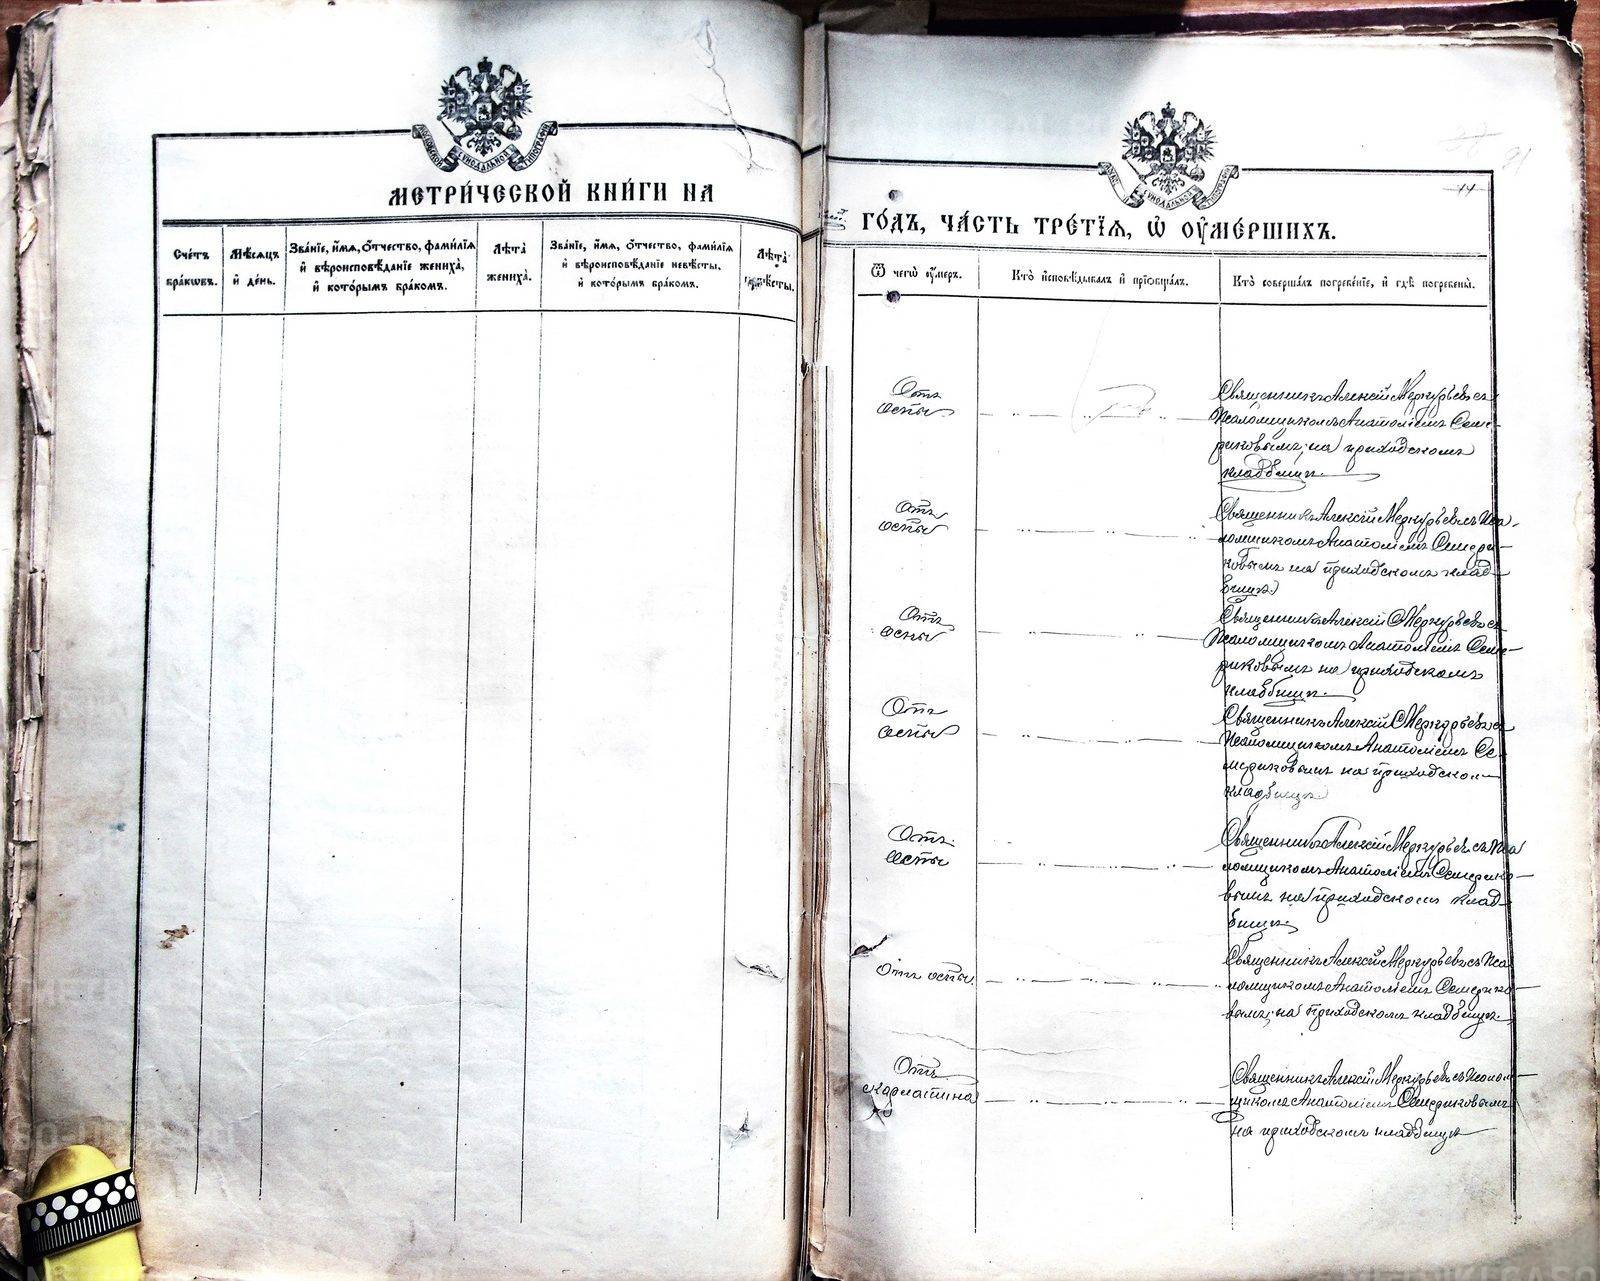 МОСКОВСКОЙ СѴНОДАЛЬНОЙ ТИПОГРАФІИ
МЕТРИ́ЧЕСКОЙ КНИ́ГИ НА
Сче́тъ бра́кωвъ.
Мѣ́сѧцъ и҆ де́нь.
Зва́нїе, и҆́мѧ, ѻ҆́тчество, фами́лїѧ и҆ вѣроисповѣ́данїе жениха̀, и҆ кото́рымъ бра́комъ.
Лѣ́та жениха̀.
Зва́нїе, и҆́мѧ, ѻ҆́тчество, фами́лїѧ и҆ вѣроисповѣ́данїе невѣ́сты, и҆ кото́рымъ бра́комъ.
Лѣ́та невѣ́сты.
91
14
ГО́ДЪ, ЧА́СТЬ ТРЕ́ТЇѦ, Ѽ ОУ҆МЕ́РШИХЪ.
Ѿ чегѡ̀ оу҆́меръ.
Кто̀ и҆сповѣ́дывалъ и҆ прїѡбща́лъ.
Кто̀ соверша́лъ погребе́нїе, и҆ гдѣ̀ погребены̀.
Отъ
оспы
Священникъ Алексій Меркурьевъ съ
Псаломщикомъ Анатоліемъ Семе-
риковымъ, на приходскомъ
кладбищѣ.
Отъ
оспы
Священникъ Алексій Меркурьевъ съ Пса-
ломщикомъ Анатоліемъ Семери-
ковымъ на приходскомъ клад-
бищѣ.
Отъ
оспы
Священникъ Алексій Меркурьевъ съ
Псаломщикомъ Анатоліемъ Семе-
риковымъ на приходскомъ
кладбищѣ.
Отъ
оспы
Священникъ Алексій Меркурьевъ съ
Псаломщикомъ Анатоліемъ Се-
мериковымъ на приходском
кладбищѣ
Отъ
оспы
Священникъ Алексій Меркурьевъ съ Пса
ломщикомъ Анатоліемъ Семерико-
вымъ на приходскомъ клад-
бищѣ
Отъ оспы
Священникъ Алексій Меркурьевъ съ Пса
ломщикомъ Анатоліемъ Семерико-
вымъ, на приходскомъ кладбищѣ.
Отъ
скарлатина
Священникъ Алексій Меркурьевъ съ Псалом-
щикомъ Анатоліемъ Семериковымъ
на приходскомъ кладбищѣ